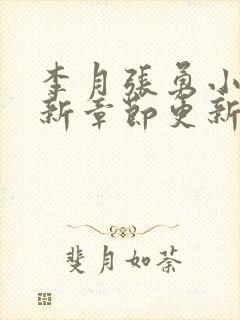 李月張勇小
新章節更新
斐月如荼